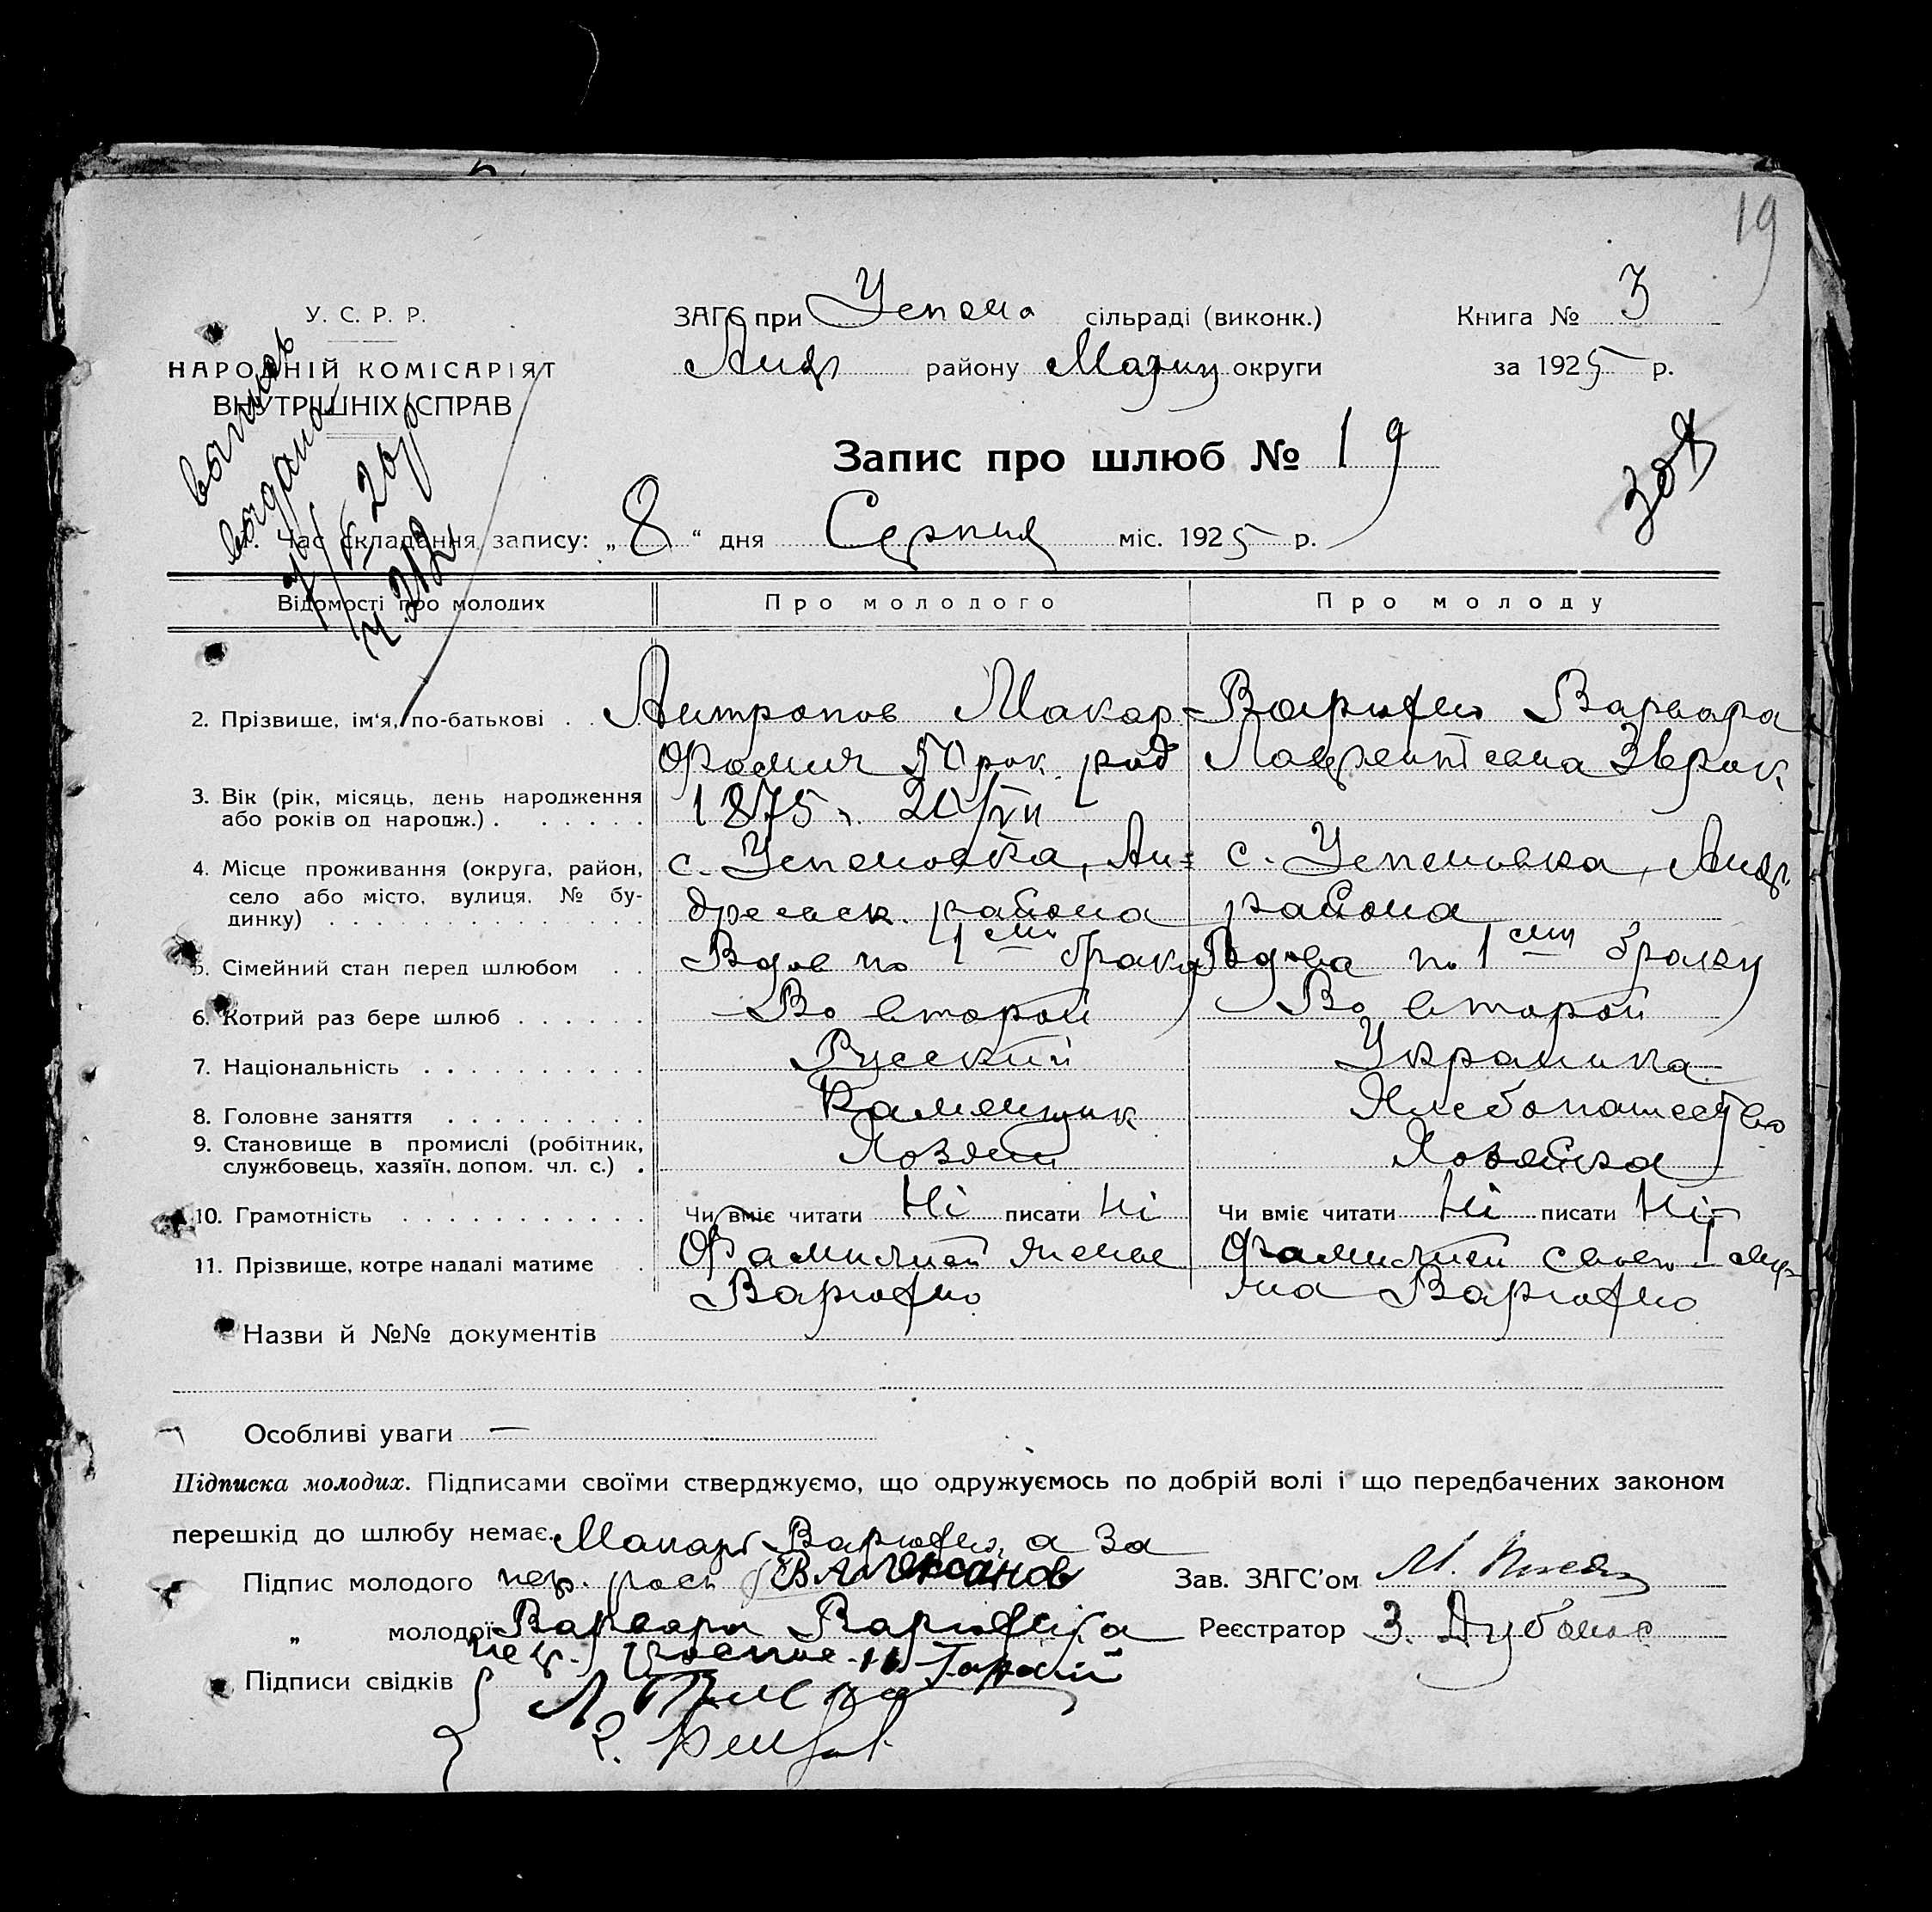 19
У. С. Р. Р.
НАРОДНІЙ КОМІСАРІЯТ
ВНУТРІШНІХ СПРАВ
ЗАГС при Успено сільраді (виконк.)
Андр району Маріуп округи
Книга № 3
за 1925 р.
Запис про шлюб № 19
1. Час складання запису: „ 8 “ дня Серпня міс. 1925 р.
Відомості про молодих Про молодого Про молоду
2. Прізвище, ім'я, по-батькові . . Антропов Макар Варюхно Варвара
Фомич 50 рок. род Лаврентієвна 38 рок
3. Вік (рік, місяць, день народження
або років од народж.) . . . . . . 1875 г. 20/VII
4. Місце проживання (округа, район, с. Успеновка, Ан= с. Успеновка, Андр.
село або місто, вулиця, № бу-
динку) . . . . . . . . . . . . . . дреевск. района района
5. Сімейний стан перед шлюбом . . Вдов по 1ᵐᵘ браку Вдова по 1ᵐᵘ браку
6. Котрий раз бере шлюб . . . . . . Во второй Во второй
7. Національність . . . . . . . . . . Русский Украинка
8. Головне заняття . . . . . . . . . Каменщик Хлебопашество
9. Становище в промислі (робітник,
службовець, хазяїн, допом. чл. с.) . Хозяин Хозяйка
10. Грамотність . . . . . . . . . . . Чи вміє читати Ні писати Ні Чи вміє читати Ні писати Ні
11. Прізвище, котре надалі матиме . Фамилией жены Фамилией своего I му-
Варюхно жа Варюхно
Назви й №№ документів
Особливі уваги —
Підписка молодих. Підписами своїми стверджуємо, що одружуємось по добрій волі і що передбачених законом
перешкід до шлюбу немає. Макар Варюхно, а за
Підпис молодого нег. росп
Зав. ЗАГС'ом М.
„ молодої Варвара Варюхно а за
Реєстратор З.
нег.
Підписи свідків